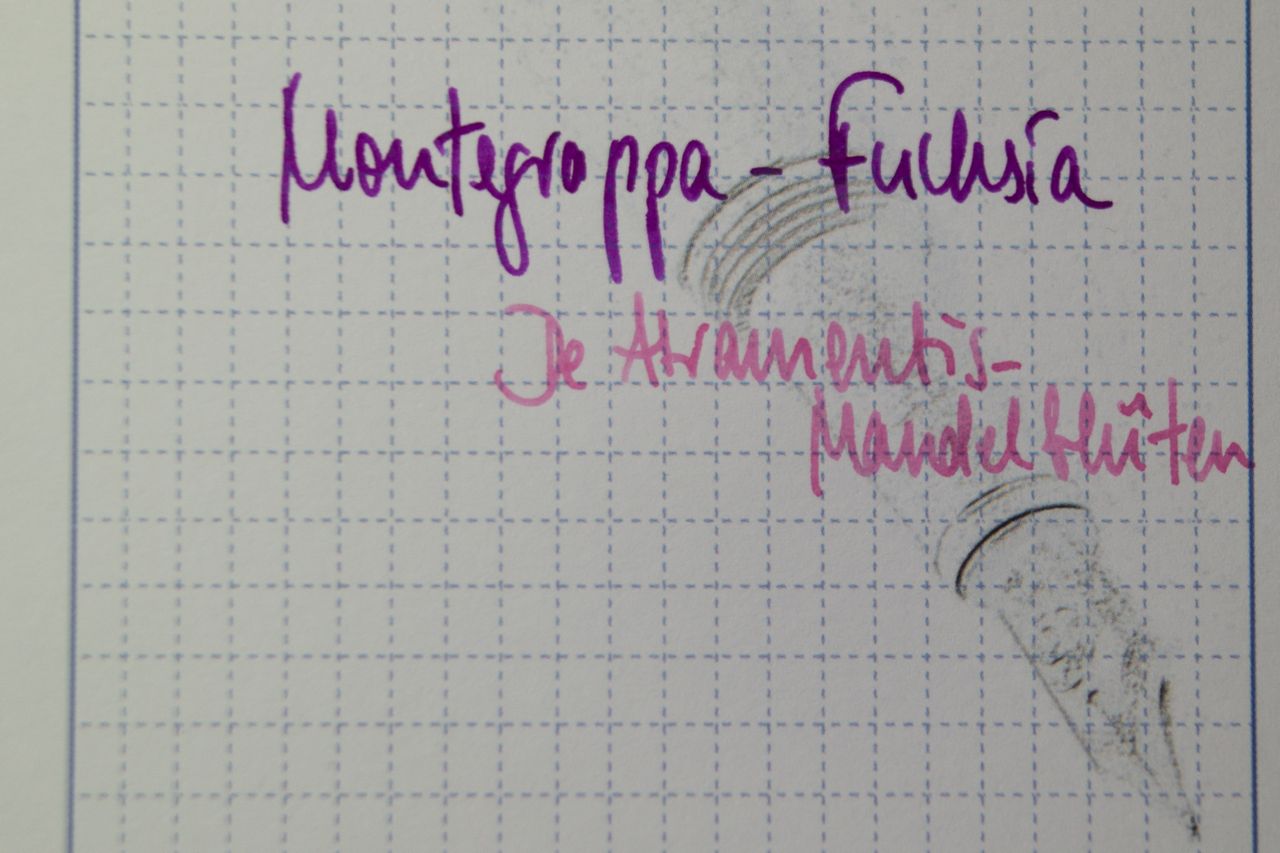 Montegrappa - Fuchsia
De Atramentis-
Mandelblüten